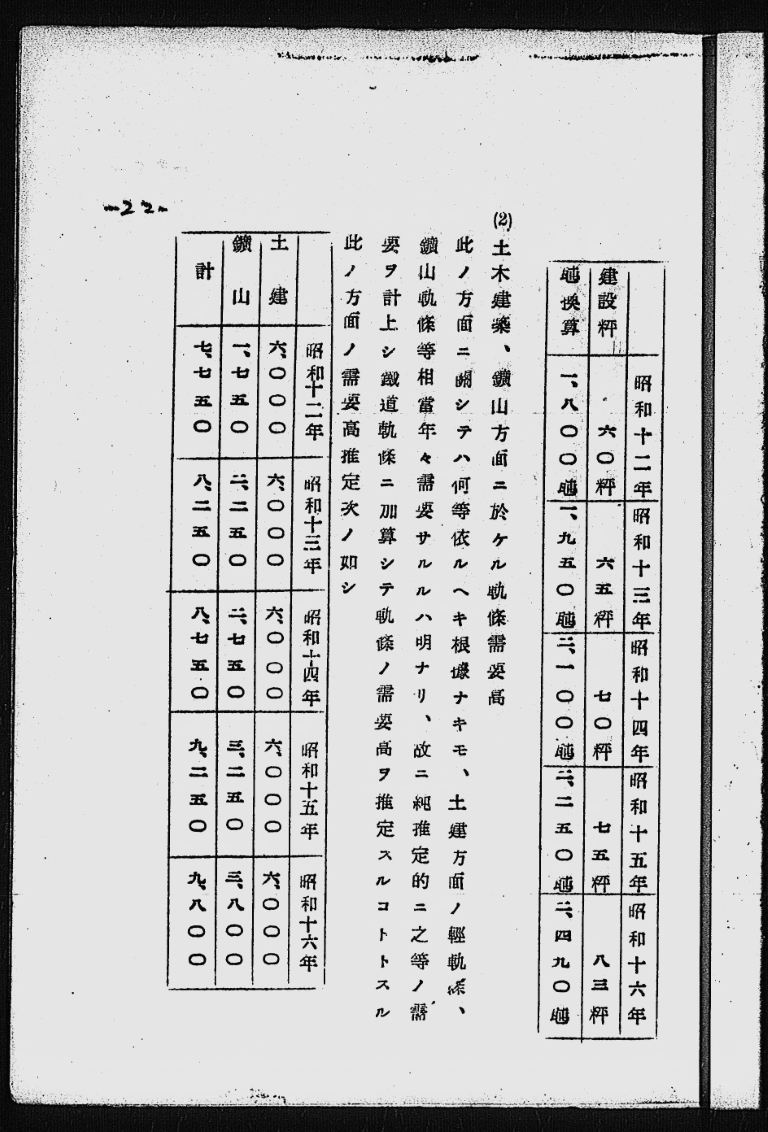 昭和十二年 昭和十三年 昭和十四年 昭和十五年 昭和十六年
建設粁 六〇粁 六五粁 七〇粁 七五粁 八三粁
瓲換算 一、八〇〇瓲 一、九五〇瓲 二、一〇〇瓲 二、二五〇瓲 二、四九〇瓲
(2) 土木建築、鑛山方面ニ於ケル軌條需要高
此ノ方面ニ關シテハ何等依ルヘキ根據ナキモ、土建方面ノ輕軌條、
鑛山軌條等相當年々需要サルルハ明ナリ、故ニ純推定的ニ之等ノ需
要ヲ計上シ鐵道軌條ニ加算シテ軌條ノ需要高ヲ推定スルコトトスル
此ノ方面ノ需要高推定次ノ如シ
昭和十二年 昭和十三年 昭和十四年 昭和十五年 昭和十六年
土建 六、〇〇〇 六、〇〇〇 六、〇〇〇 六、〇〇〇 六、〇〇〇
鑛山 一、七五〇 二、二五〇 二、七五〇 三、二五〇 三、八〇〇
計 七、七五〇 八、二五〇 八、七五〇 九、二五〇 九、八〇〇
-22-